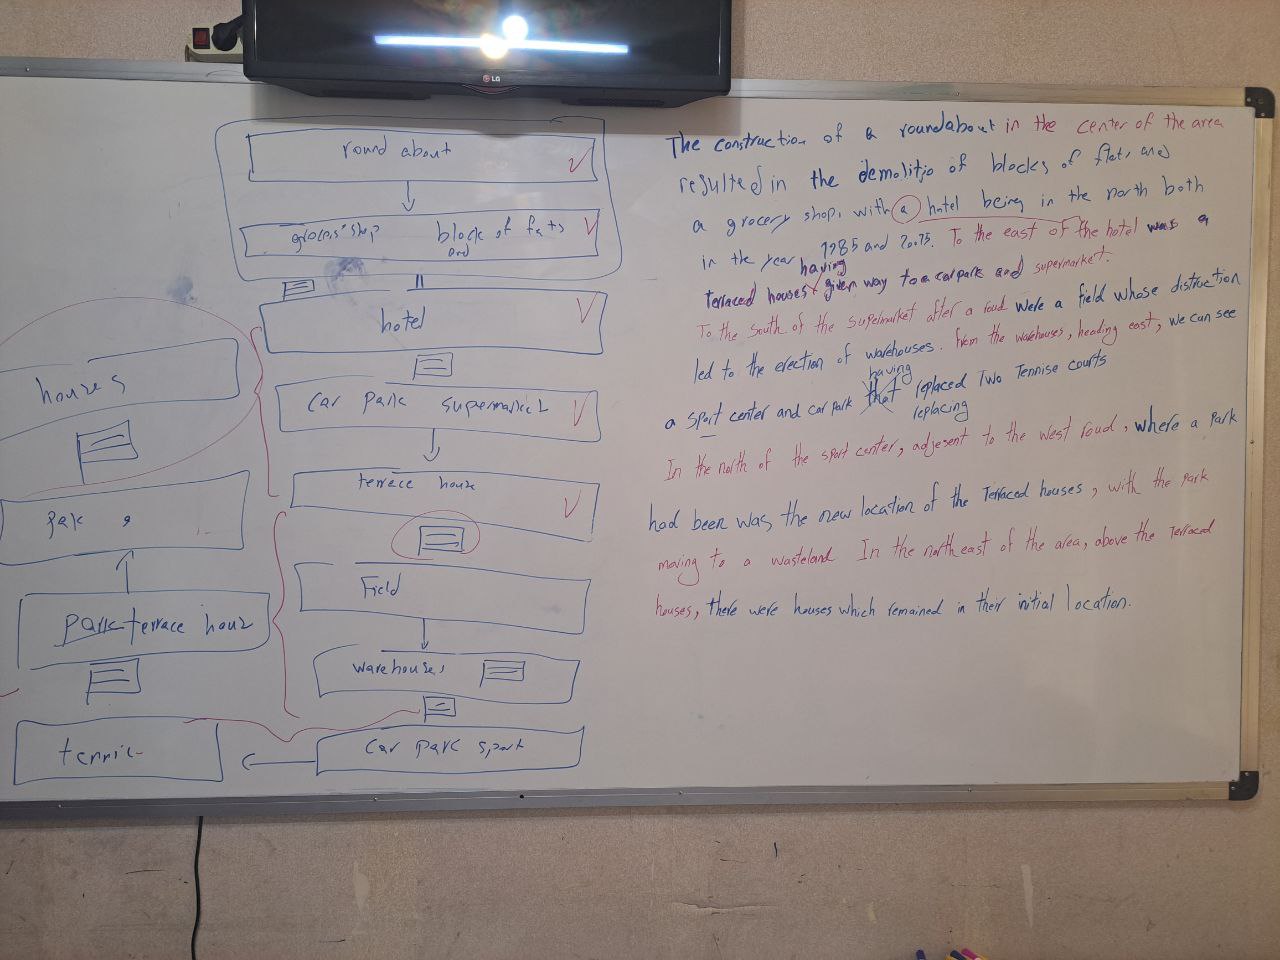 LG
round about
grocery shop block of flats
and
hotel
car park supermarket
terrace house
Field
warehouses
car park sport
houses
park
park terrace houz
tennic
The construction of a roundabout in the center of the area
resulted in the demolitio of blocks of flats and
a grocery shop, with a hotel being in the north both
in the year 1985 and 2025. To the east of the hotel was a
having
terraced houses given way to a car park and supermarket.
To the south of the supermarket after a roud were a field whose distruction
led to the erection of warehouses. from the warehouses, heading east, we can see
having
a sport center and car park that replaced Two Tennise courts
replacing
In the north of the sport center, adjesent to the west roud, where a park
had been was the new location of the Terraced houses, with the park
moving to a wasteland In the northeast of the area, above the Terraced
houses, there were houses which remained in their initial location.